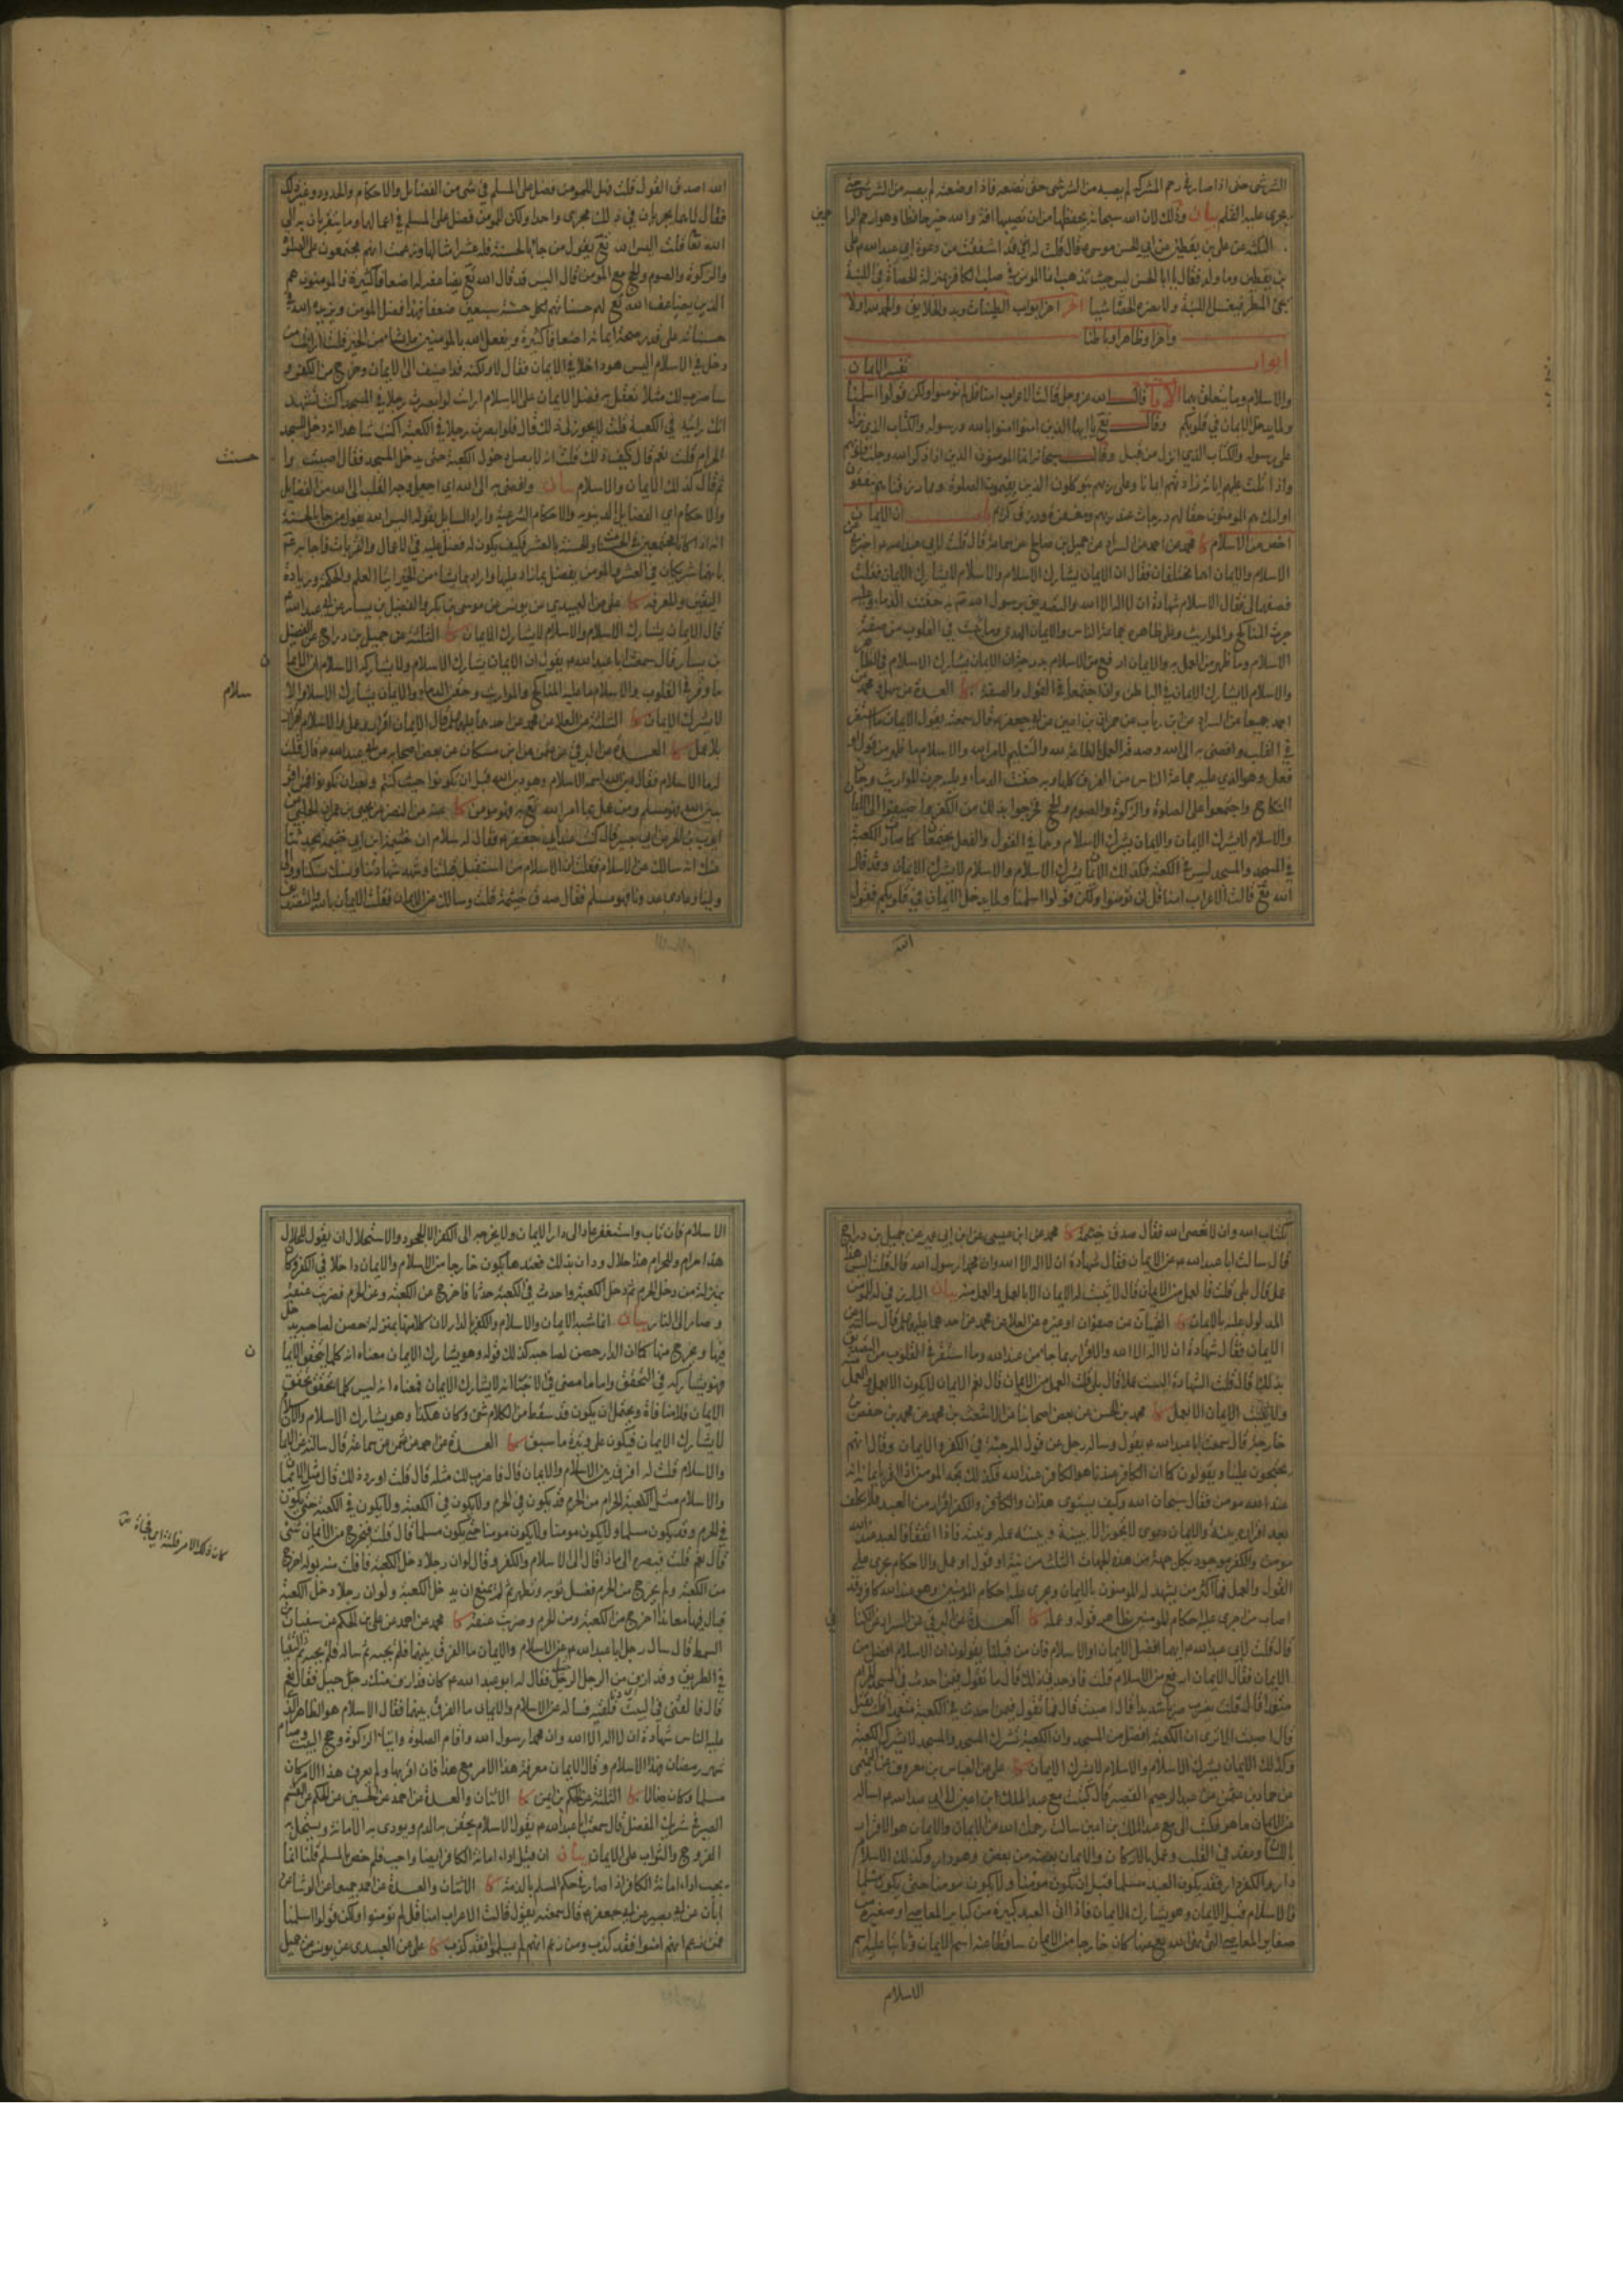 الشر شئ حتى اذا صار في رحم المشركة لم يصبه من الشر شئ حتى تضعه فاذا وضعته لم يصبه من الشر شئ حتى
يجرى عليه القلم بيان وذلك لان الله سبحانه يحفظها من ان تصيبها افة والله خير حافظا وهو ارحم الرا
حمين
الثلثة عن علي بن يقطين عن ابي الحسن موسى ع قال قلت له اني قد اشفقت من دعوة ابي عبد الله ع على
بن يقطين وما ولد فقال يا ابا الحسن ليس حيث تذهب انما المؤمن في صلب الكافر بمنزلة الحصاة في اللبنة
يجئ المطر فيغسل اللبنة ولا يضر الحصاة شيئا اخر ابواب الطينات وبدو الخلايق والحمد لله اولا
واخرا وظاهرا وباطنا
ابواب تفسير الايمان
والاسلام وما يتعلق بهما الايات قال الله عز وجل قالت الاعراب امنا قل لم تؤمنوا ولكن قولوا اسلمنا
ولما يدخل الايمان في قلوبكم وقال تع يا ايها الذين امنوا امنوا بالله ورسوله والكتاب الذي نزل
على رسوله والكتاب الذي انزل من قبل وقال سبحانه انما المؤمنون الذين اذا ذكر الله وجلت قلوبهم
واذا تليت عليهم اياته زادتهم ايمانا وعلى ربهم يتوكلون الذين يقيمون الصلوة ومما رزقناهم ينفقون
اولئك هم المؤمنون حقا لهم درجات عند ربهم ومغفرة ورزق كريم باب ان الايمان
اخص من الاسلام كا محمد عن احمد عن السراد عن جميل بن صالح عن سماعة قال قلت لابي عبد الله ع اخبرني عن
الاسلام والايمان اهما مختلفان فقال ان الايمان يشارك الاسلام والاسلام لا يشارك الايمان فقلت
فصفهما لي فقال الاسلام شهادة ان لا اله الا الله والتصديق برسول الله ص به حقنت الدماء وعليه
جرت المناكح والمواريث وعلى ظاهره جماعة الناس والايمان الهدى وما يثبت في القلوب من صفة
الاسلام وما ظهر من العمل به والايمان ارفع من الاسلام بدرجة ان الايمان يشارك الاسلام في الظاهر
والاسلام لا يشارك الايمان في الباطن وان اجتمعا في القول والصفة كا العدة عن سهل و محمد عن
احمد جميعا عن السراد عن ابن رياب عن حمران بن اعين عن ابي جعفر ع قال سمعته يقول الايمان ما استقر
في القلب وافضى به الى الله وصدقه العمل بالطاعة لله والتسليم لامر الله والاسلام ما ظهر من قول او
فعل وهو الذي عليه جماعة الناس من الفرق كلها وبه حقنت الدماء وعليه جرت المواريث وجاز
النكاح واجتمعوا على الصلوة والزكوة والصوم والحج فخرجوا بذلك من الكفر واضيفوا الى الايمان
والاسلام لا يشرك الايمان والايمان يشرك الاسلام وهما في القول والفعل يجتمعان كما صارت الكعبة
في المسجد والمسجد ليس في الكعبة فكذلك الايمان يشرك الاسلام والاسلام لا يشرك الايمان وقد قال
الله تع قالت الاعراب امنا قل لم تؤمنوا ولكن قولوا اسلمنا ولما يدخل الايمان في قلوبكم فقول
الله
الله اصدق القول قلت فهل للمومن فضل على المسلم في شئ من الفضايل والاحكام والحدود وغير ذلك
فقال لا هما يجريان في ذلك مجرى واحدا ولكن للمومن فضل على المسلم في اعمالهما وما يتقربان به الى
الله تعا قلت اليس الله تع يقول من جاء بالحسنة فله عشر امثالها وزعمت انهم مجتمعون على الصلوة
والزكوة والصوم والحج مع المومن قال اليس قد قال الله تع يضاعفه له اضعافا كثيرة فالمومنون هم
الذين يضاعف الله تع لهم حسناتهم لكل حسنة سبعين ضعفا فهذا فضل المومن ويزيده الله في
حسناته على قدر صحة ايمانه اضعافا كثيرة ويفعل الله بالمومنين ما يشاء من الخير قلت ارايت من
دخل في الاسلام اليس هو داخلا في الايمان فقال لا ولكنه قد اضيف الى الايمان وخرج من الكفر و
ساضرب لك مثلا تعقل به فضل الايمان على الاسلام ارايت لو بصرت رجلا في المسجد اكنت تشهد
انك رايته في الكعبة قلت لا يجوز لي ذلك قال فلو بصرت رجلا في الكعبة اكنت شاهدا انه دخل المسجد
الحرام قلت نعم قال كيف ذلك قلت انه لا يصل دخول الكعبة حتى يدخل المسجد فقال اصبت وا
حسنت
ثم قال كذلك الايمان والاسلام بيان وافضى به الى الله اي اجعل وجه القلب الى الله من الفضايل
والاحكام اي الفضايل الدنيويه والاحكام الشرعية واراد السايل بقوله اليس الله يقول من جاء بالحسنة
اليقين والمعرفة كا علي عن العبيدي عن يونس عن موسى بن بكر عن الفضيل بن يسار عن ابي عبد الله ع
قال الايمان يشارك الاسلام والاسلام لا يشارك الايمان كا الثلثة عن جميل بن دراج عن الفضيل
بن يسار قال سمعت ابا عبد الله ع يقول ان الايمان يشارك الاسلام ولا يشاركه الاسلام ان الايما
ن
ما وقر في القلوب والاسلام ما عليه المناكح والمواريث وحقن الدماء والايمان يشارك الاسلام والا
سلام
لا يشرك الايمان كا الثلثة عن العلا عن محمد عن احدهما عليهما السلم قال الايمان اقرار وعمل والاسلام اقرار
بلا عمل كا العدة عن البرقي عن علي عن ابن مسكان عن بعض اصحابه عن ابي عبد الله ع قال قلت
له ما الاسلام فقال دين الله اسمه الاسلام وهو دين الله قبل ان تكونوا حيث كنتم وبعد ان تكونوا فمن اقر
بدين الله فهو مسلم ومن عمل بما امر الله تع به فهو مومن كا عنه عن النضر عن يحيى بن عمران الحلبي عن
ايوب بن الحر عن ابي بصير قال كنت عند ابي جعفر ع فقال له سلام ان خيثمة ابن ابي خيثمة يحدثنا
عنك انه سالك عن الاسلام فقلت ان الاسلام من استقبل قبلتنا وشهد شهادتنا ونسك نسكنا ووالى
ولينا وعادى عدونا فهو مسلم فقال صدق خيثمة قلت وسالك عن الايمان فقلت الايمان بالله والتصديق
بكتاب الله وان لا تعصى الله فقال صدق خيثمة كا محمد عن ابن عيسى عن ابن ابي عمير عن جميل بن دراج
قال سالت ابا عبد الله ع عن الايمان فقال شهادة ان لا اله الا الله وان محمدا رسول الله قال قلت اليس هذا
عمل قال بلى قلت فالعمل من الايمان قال لا يثبت له الايمان الا بالعمل والعمل منه بيان البارز في له للمومن
المدلول عليه بالايمان كا القميان عن صفوان او غيره عن العلا عن محمد عن احدهما عليهما السلم قال سالته عن
الايمان فقال شهادة ان لا اله الا الله والاقرار بما جاء من عند الله وما استقر في القلوب من التصديق
بذلك قال قلت الشهادة اليست عملا قال بلى قلت العمل من الايمان قال نعم الايمان لا يكون الا بعمل والعمل منه
ولا يثبت الايمان الا بعمل كا محمد بن الحسن عن بعض اصحابنا عن الاشعث بن محمد عن محمد بن حفص بن
خارجة قال سمعت ابا عبد الله ع يقول وساله رجل عن قول المرجئة في الكفر والايمان وقال انهم
يحتجون علينا ويقولون كما ان الكافر عندنا هو الكافر عند الله فكذلك نجد المومن اذا اقر بايمانه انه
عند الله مومن فقال سبحان الله وكيف يستوى هذان والكفر اقرار من العبد فلا يكلف
بعد اقراره ببينة والايمان دعوى لا يجوز الا ببينة وبينته عمله ونيته فاذا اتفقا فالعبد عند الله
مومن والكفر موجود بكل جهة من هذه الجهات الثلث من نية او قول او عمل والاحكام تجري على
القول والعمل فما اكثر من يشهد له المومنون بالايمان ويجري عليه احكام المومنين وهو عند الله كافر وقد
اصاب من اجرى عليه احكام المومنين بظاهر قوله وعمله كا العدة عن البرقي عن السراد عن الكنا
ني
قال قلت لابي عبد الله ع ايهما افضل الايمان او الاسلام فان من قبلنا يقولون ان الاسلام افضل من
الايمان فقال الايمان ارفع من الاسلام قلت فاوجدني ذلك قال ما تقول فيمن احدث في المسجد الحرام
متعمدا قال قلت يضرب ضربا شديدا قال اصبت قال فما تقول فيمن احدث في الكعبة متعمدا قلت يقتل
قال اصبت الا ترى ان الكعبة افضل من المسجد وان الكعبة تشرك المسجد والمسجد لا يشرك الكعبة
وكذلك الايمان يشرك الاسلام والاسلام لا يشرك الايمان كا علي عن العباس بن معروف عن التميمي
عن حماد بن عثمن عن عبد الرحيم القصير قال كتبت مع عبد الملك ابن اعين الى ابي عبد الله ع اساله
عن الايمان ما هو فكتب الى مع عبد الملك بن اعين سالت رحمك الله عن الايمان والايمان هو الاقرار
باللسان وعقد في القلب وعمل بالاركان والايمان بعضه من بعض وهو دار وكذلك الاسلام
دار والكفر دار فقد يكون العبد مسلما قبل ان يكون مومنا ولا يكون مومنا حتى يكون مسلما
فالاسلام قبل الايمان وهو يشارك الايمان فاذا اتى العبد كبيرة من كباير المعاصي او صغيرة من
صغاير المعاصي التي نهى الله تع عنها كان خارجا من الايمان ساقطا عنه اسم الايمان وثابتا عليه اسم
الاسلام
الاسلام فان تاب واستغفر عاد الى دار الايمان ولا يخرجه الى الكفر الا الجحود والاستحلال ان يقول للحلال
هذا حرام وللحرام هذا حلال ودان بذلك فعندها يكون خارجا من الاسلام والايمان داخلا في الكفر وكان
بمنزلة من دخل الحرم ثم دخل الكعبة واحدث في الكعبة حدثا فاخرج عن الكعبة وعن الحرم فضربت عنقه
وصار الى النار بيان انما شبه الايمان والاسلام والكفر بالدار لان كلا منها بمنزلة حصن لصاحبه يدخل
فيها ويخرج منها كما ان الدار حصن لصاحبه كذلك قوله وهو يشارك الايمان معناه انه كلما يتحقق الايما
ن
فهو يشاركه في التحقق واما ما مضى في الاخبار انه لا يشارك الايمان فمعناه انه ليس كلما تحقق تحقق
الايمان فلا منافاة ويحتمل ان يكون قد سقط من الكلام شئ وكان هكذا وهو يشارك الاسلام والاسلام
لا يشارك الايمان فيكون على وتيرة ما سبق كا العدة عن احمد عن عثمن عن سماعة قال سالته عن الايمان
والاسلام قلت له افرق بين الاسلام والايمان قال فاضرب لك مثله قال قلت اورد ذلك قال مثل الايمان
والاسلام مثل الكعبة الحرام من الحرم قد يكون في الحرم ولا يكون في الكعبة ولا يكون في الكعبة حتى يكون
في الحرم وقد يكون مسلما ولا يكون مومنا ولا يكون مومنا حتى يكون مسلما قال قلت فيخرج من الايمان شئ
قال نعم قلت فيصيره الى ماذا قال الى الاسلام او الكفر وقال لو ان رجلا دخل الكعبة فافلت منه بوله اخرج
كان ذلك الامر فلتة اي فجاة
من الكعبة ولم يخرج من الحرم فغسل ثوبه وتطهر ثم لم يمنع ان يدخل الكعبة ولو ان رجلا دخل الكعبة
فبال فيها معاندا اخرج من الكعبة ومن الحرم وضربت عنقه كا محمد عن احمد عن علي بن الحكم عن سفيان بن
السمط قال سال رجل ابا عبد الله ع عن الاسلام والايمان ما الفرق بينهما فلم يجبه ثم ساله فلم يجبه ثم التقيا
في الطريق وقد ازف من الرجل الرحيل فقال له ابو عبد الله ع كانه قد ازف منك رحيل فقال نعم
قال فالقني في البيت فلقيه فساله عن الاسلام والايمان ما الفرق بينهما فقال الاسلام هو الظاهر الذي
عليه الناس شهادة ان لا اله الا الله وان محمدا رسول الله واقام الصلوة وايتاء الزكوة وحج البيت وصيام
شهر رمضان فهذا الاسلام وقال الايمان معرفة هذا الامر مع هذا فان اقر بها ولم يعرف هذا الامر كان
مسلما وكان ضالا كا الثلثة عن الحكم بن ايمن كا الاثنان والعدة عن احمد عن الحسين عن الحكم عن القسم
الصيرفي شريك المفضل قال سمعت ابا عبد الله ع يقول الاسلام يحقن به الدم ويودى به الامانة ويستحل به
الفروج والثواب على الايمان بيان ان قيل اداء امانة الكافر ايضا واجب فلم خص بالمسلم قلنا انما
يجب اداء امانة الكافر اذا صار في حكم المسلم بالذمة كا الاثنان والعدة عن احمد جميعا عن الوشا عن
ابان عن ابي بصير عن ابي جعفر ع قال سمعته يقول قالت الاعراب امنا قل لم تومنوا ولكن قولوا اسلمنا
فمن زعم انهم امنوا فقد كذب ومن زعم انهم لم يسلموا فقد كذب كا علي عن العبيدي عن يونس عن جميل